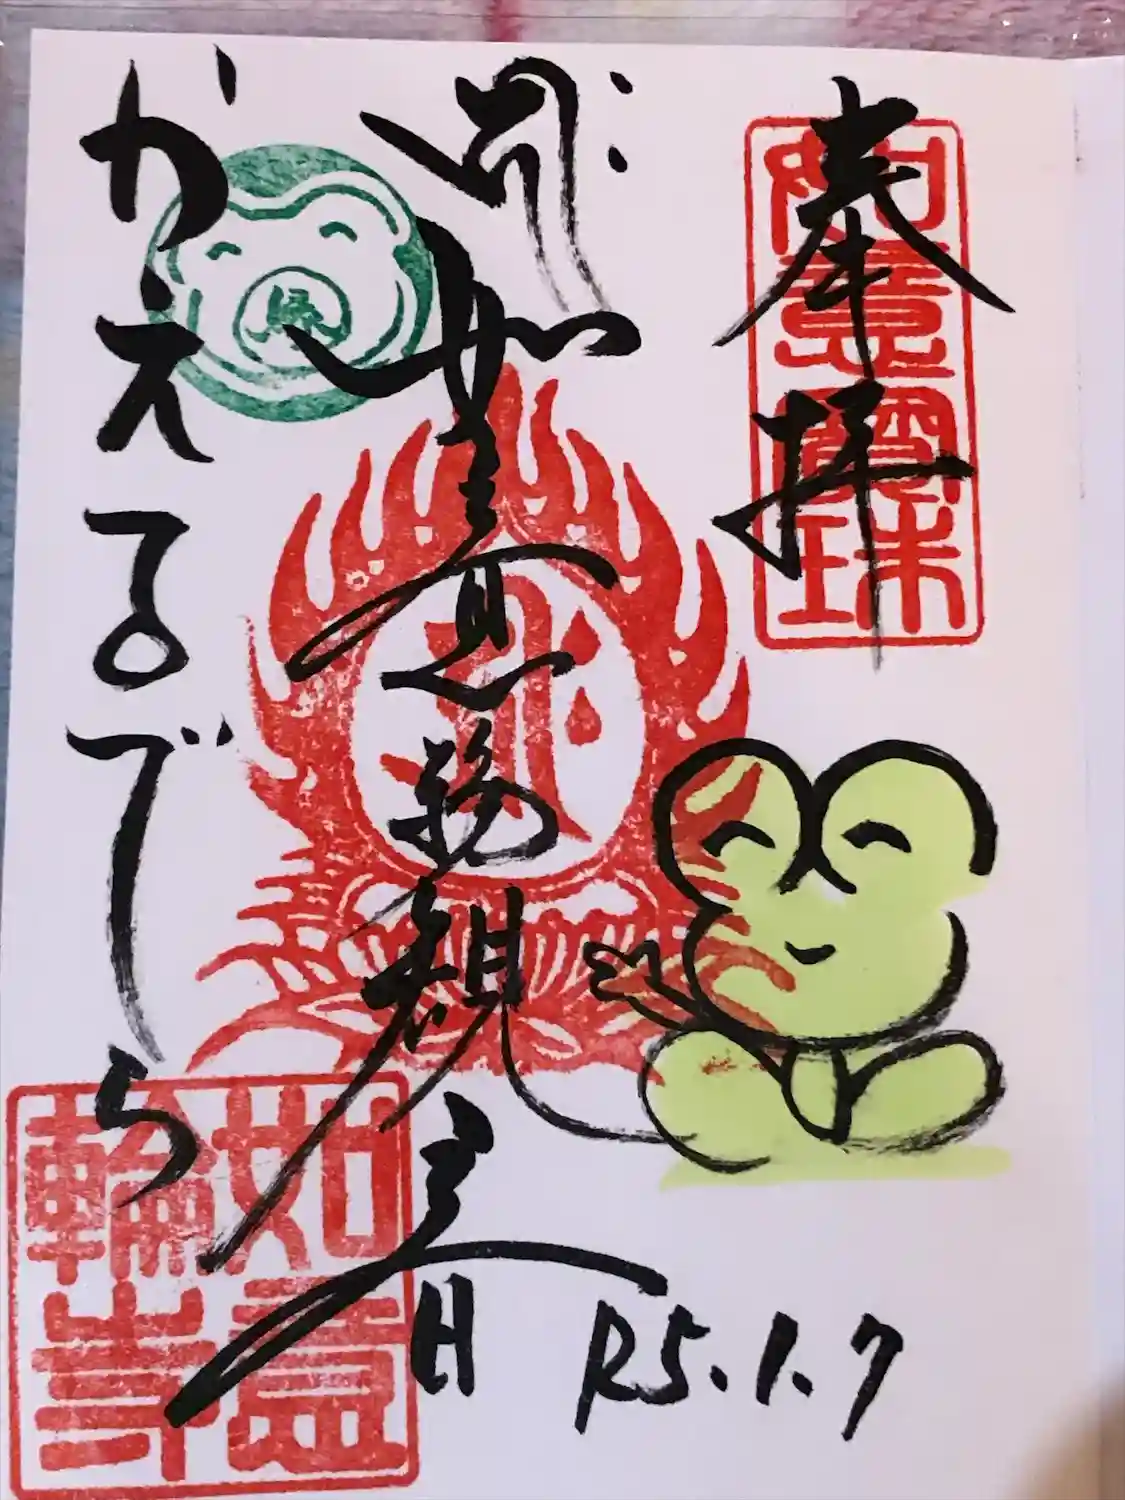 奉拝
如意寳珠
如意輪観音
R5.1.7
かえるでら
如意
輪寺